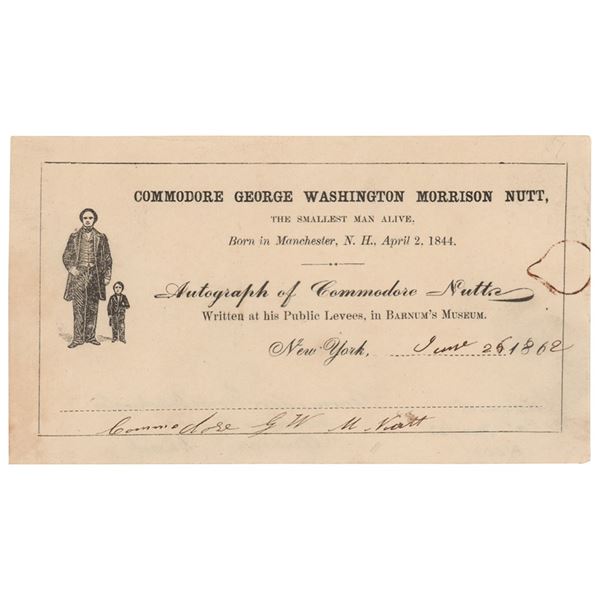 COMMODORE GEORGE WASHINGTON MORRISON NUTT,
THE SMALLEST MAN ALIVE.
Born in Manchester, N. H., April 2, 1844.
Autograph of Commodore Nutt
Written at his Public Levees, in BARNUM'S MUSEUM.
New York, June 26 1862
Commodore G W M Nutt